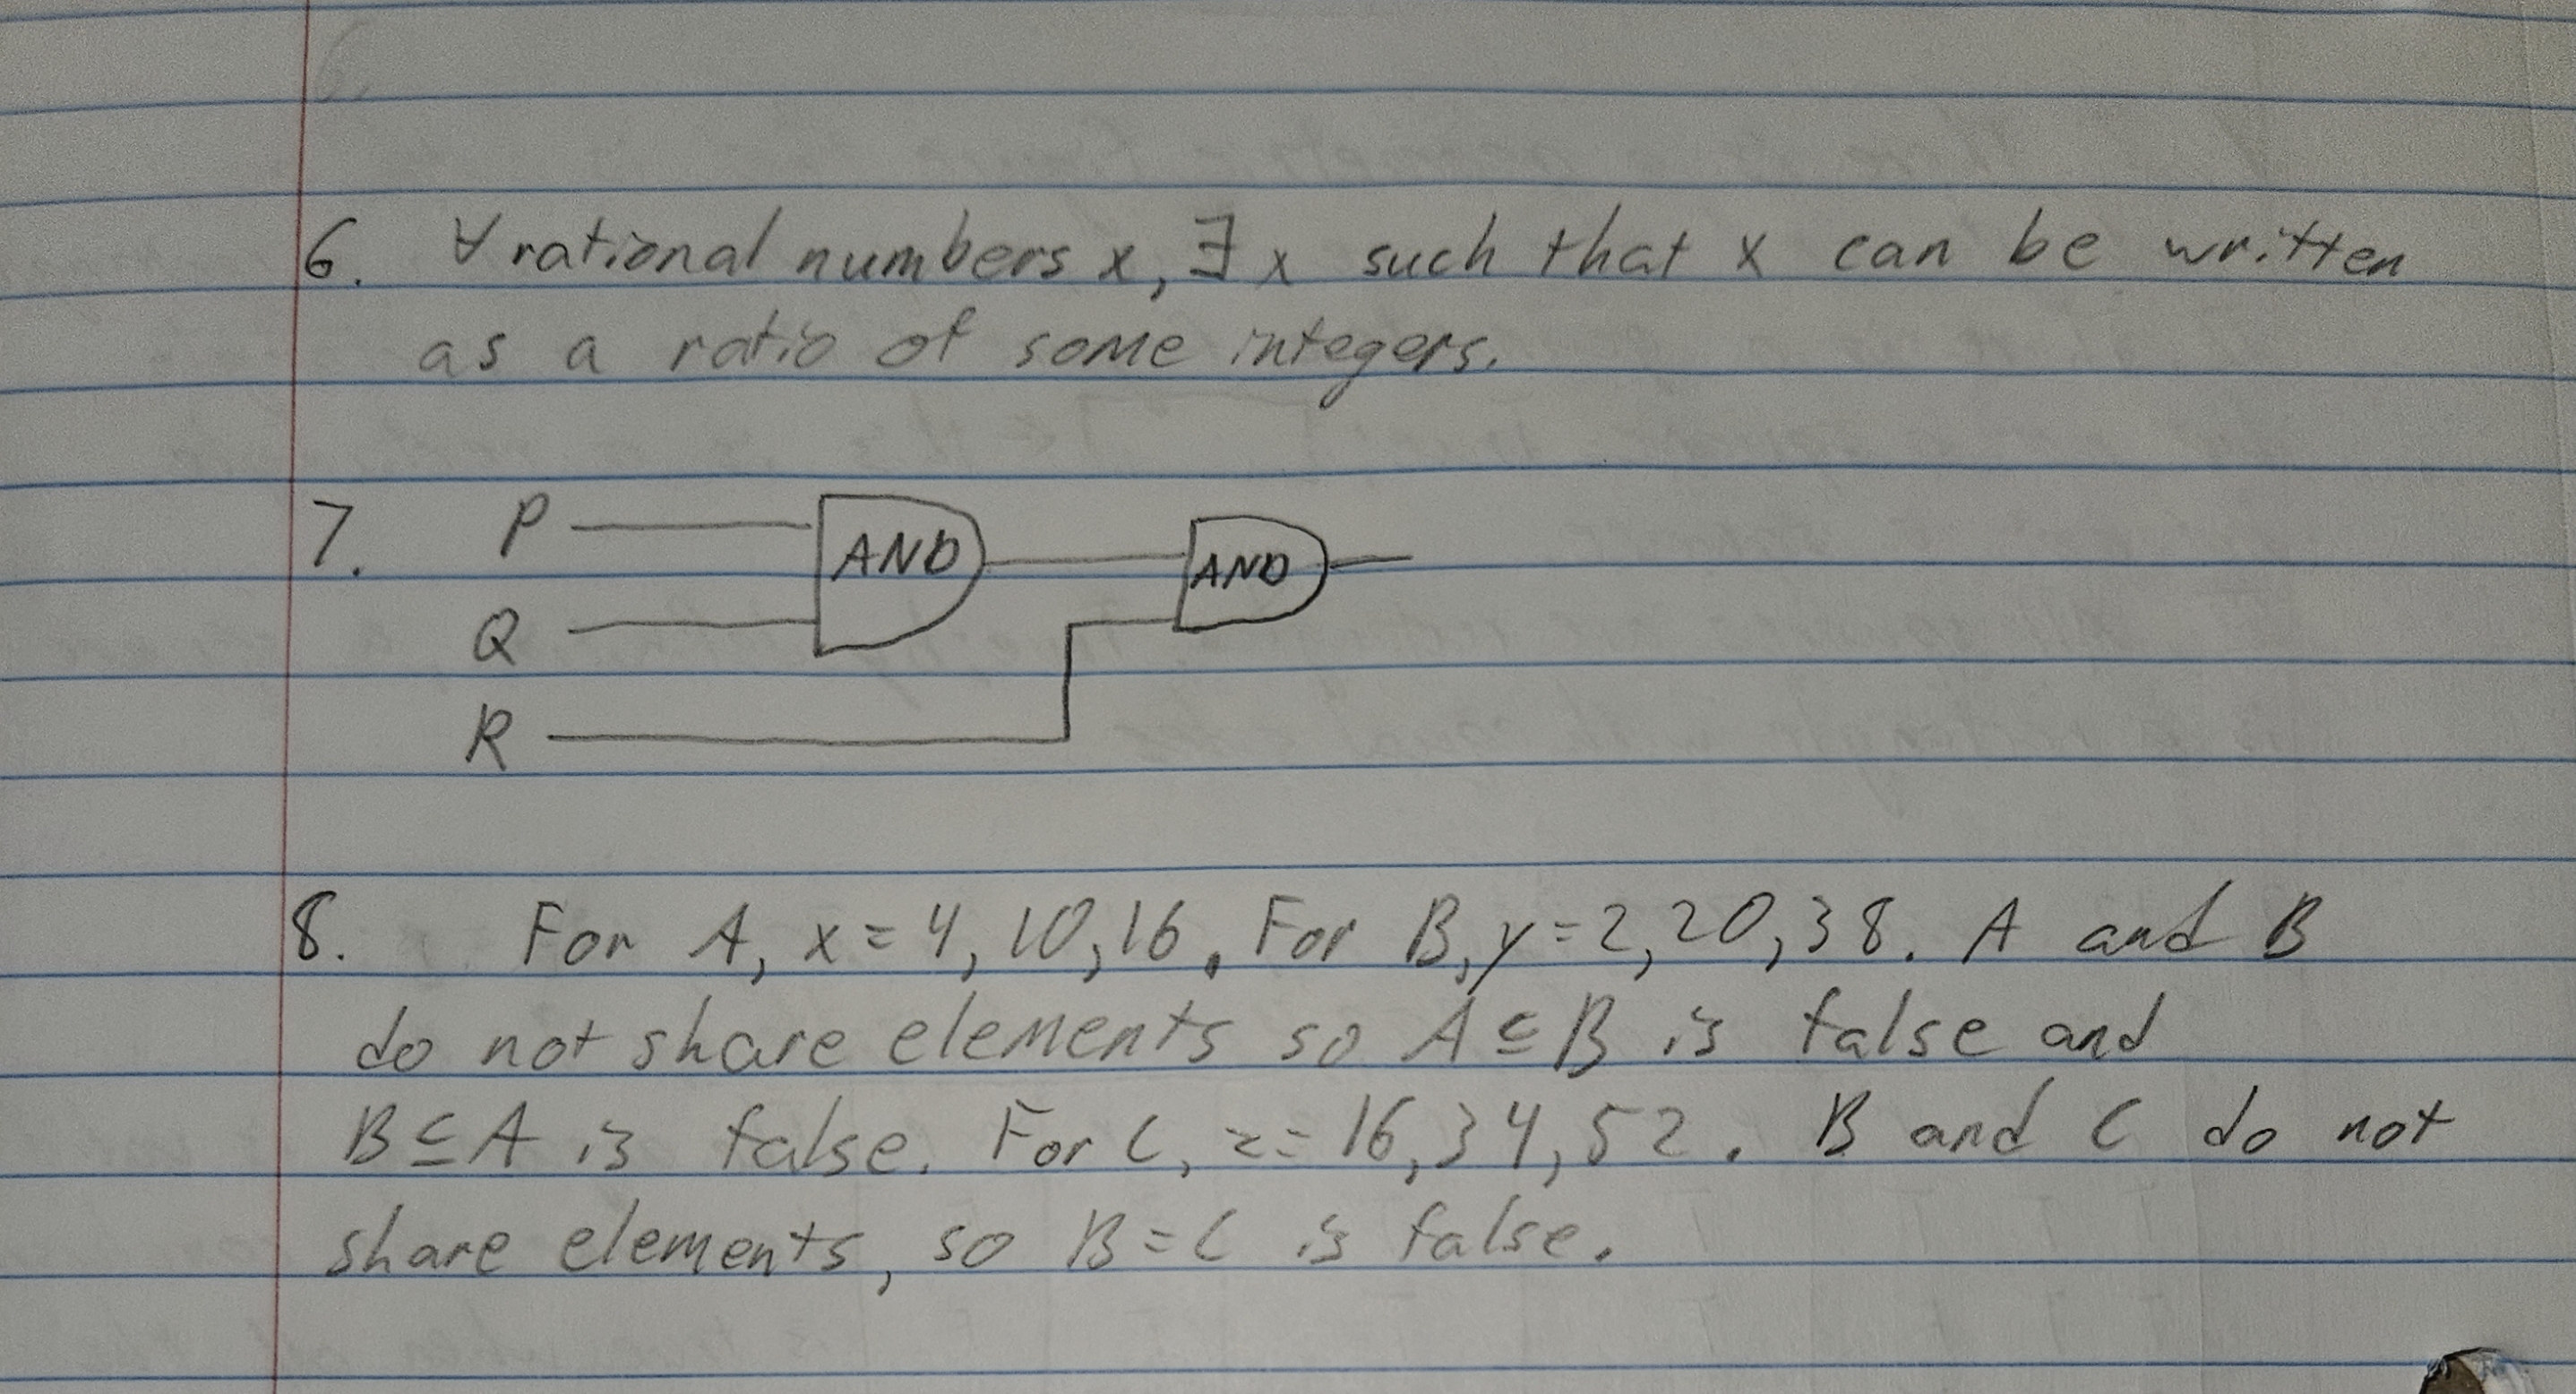 6. ∀ rational numbers x, ∃ x such that x can be written
as a ratio of some integers.
7. P AND AND
Q
R
8. For A, x = 4, 10, 16. For B, y = 2, 20, 38. A and B
do not share elements so A ⊆ B is false and
B ⊆ A is false. For C, z = 16, 34, 52. B and C do not
share elements, so B = C is false.